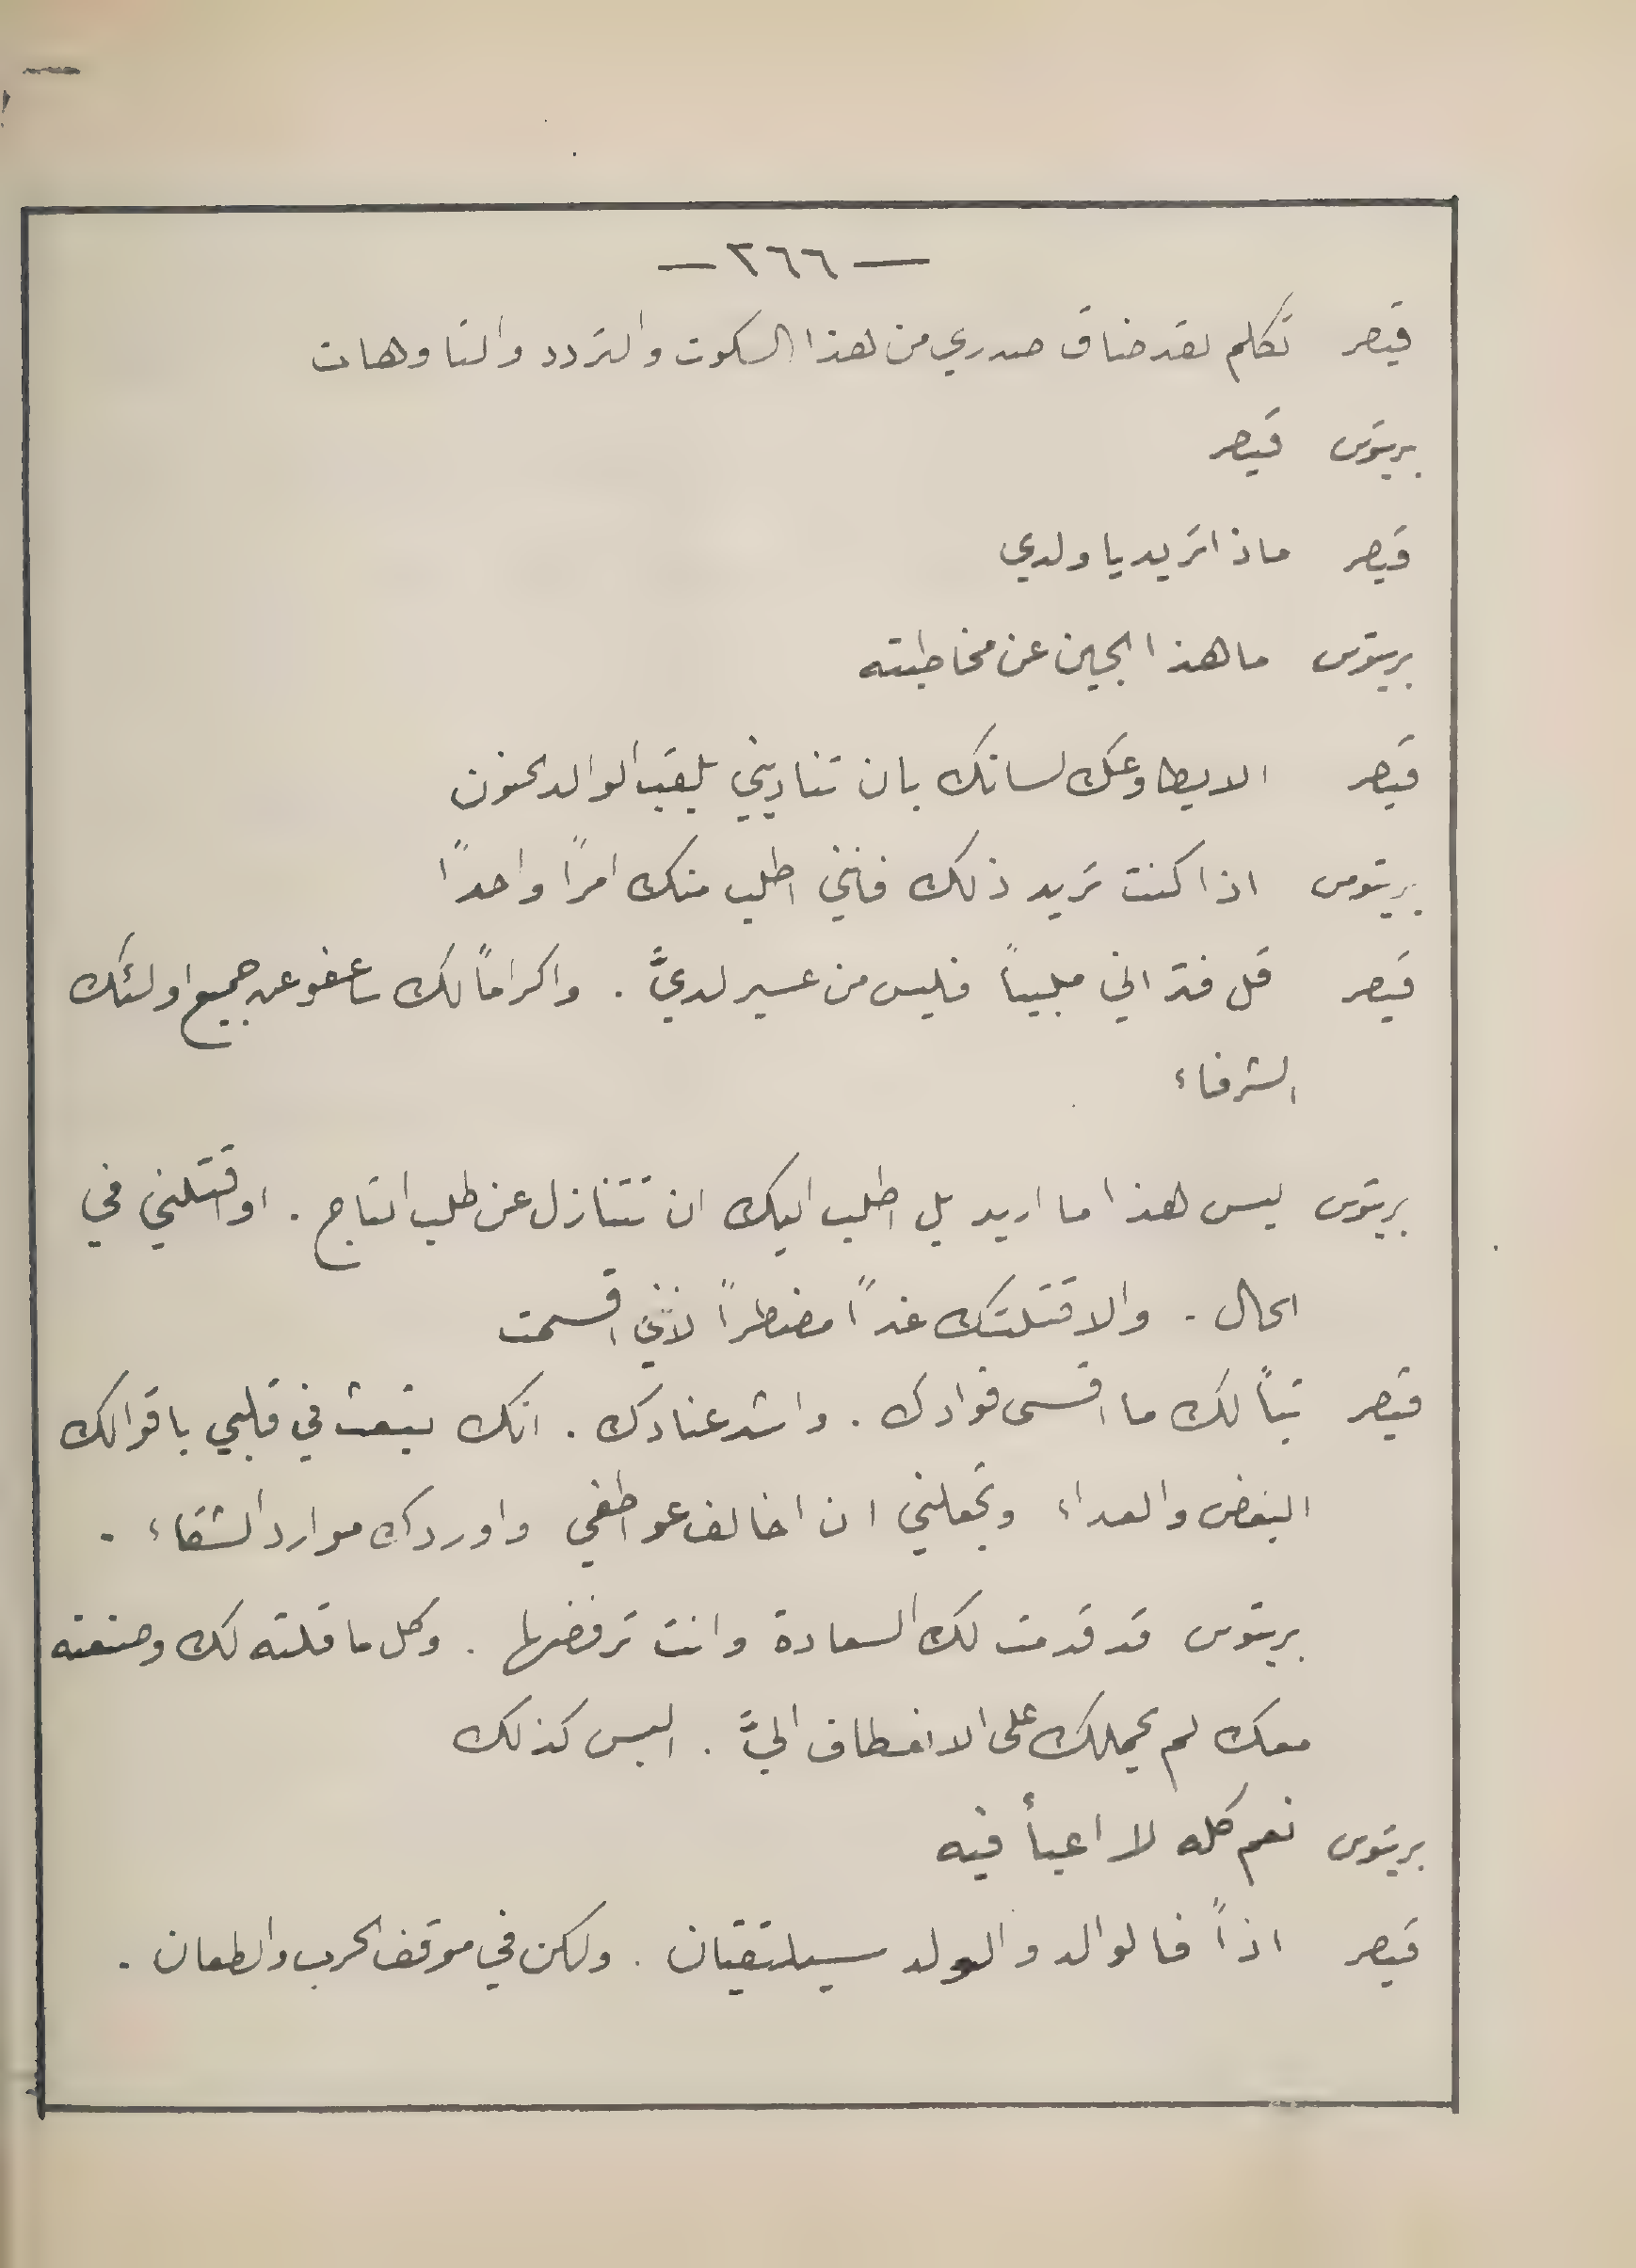 — ٢٦٦ —
قيصر تكلم لقد ضاق صدري من هذا السكوت والتردد والتاوهات
بريتوس قيصر
قيصر ماذا تريد يا ولدي
بريتوس ما هذا الجبن عن مخاطبته
قيصر الا يطاوعك لسانك بان تناديني بلقب الوالد الحنون
بريتوس اذا كنت تريد ذلك فانني اطلب منك امرًا واحدًا
قيصر قل فتراني ملبياً فليس من عسير لديَّ . واكراماً لك ساعفو عن جميع اولئك
الشرفاء
بريتوس ليس هذا ما اريد بل اطلب اليك ان تتنازل عن طلب التاج . او اقتلني في
الحال . والا قتلتك غداً مضطراً لانني اقسمت
قيصر تباً لك ما اقسى فوادك . واشد عنادك . انك تبعث في قلبي باقوالك
البغض والعداء وتجعلني ان اخالف عواطفي واوردك موارد الشقاء .
بريتوس قد قدمت لك السعادة وانت ترفضها . وكل ما قلته لك وصنعته
معك لم يحملك على الانعطاف اليَّ . اليس كذلك
بريتوس نعم كله لا اعبأ فيه
قيصر اذاً فالوالد والولد سيلتقيان . ولكن في موقف الحرب والطعان .